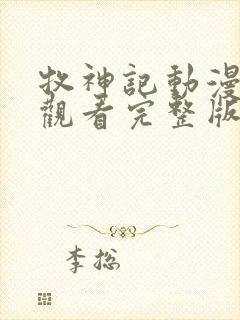 牧神記動漫
觀看完整版
李總